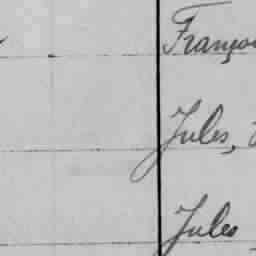 Franço
Jules,
Jules